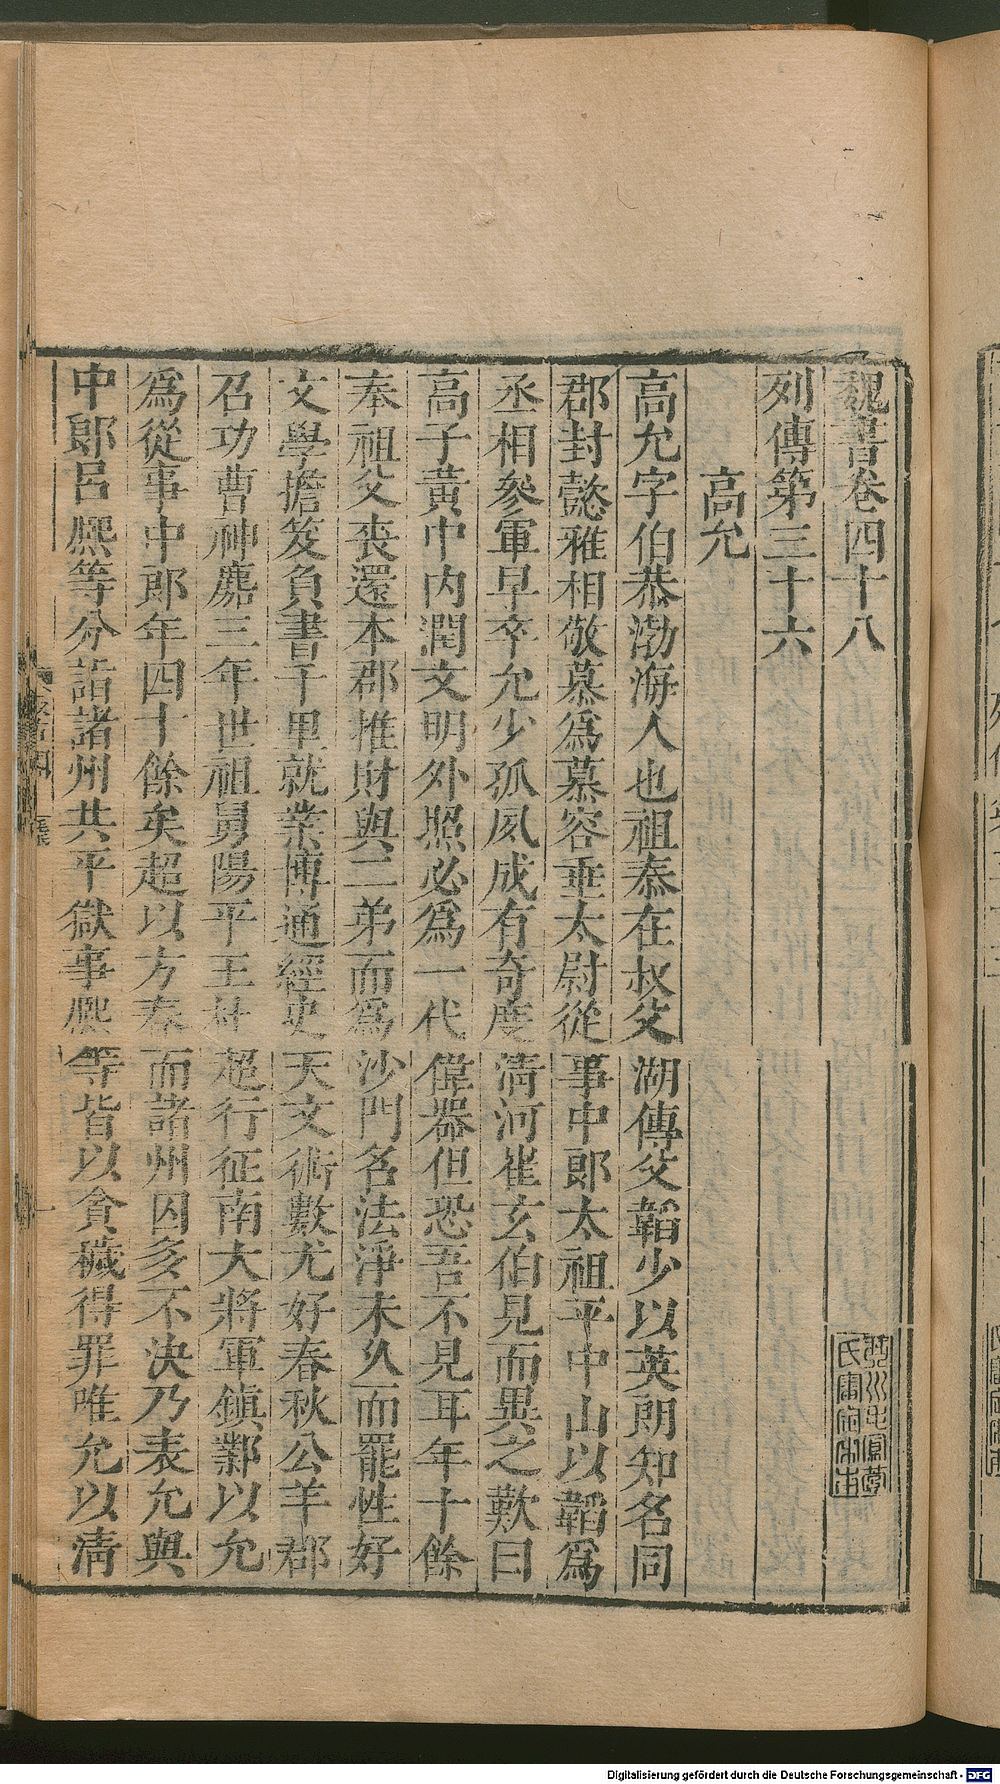 魏書卷四十八
列傳第三十六
高允
高允字伯恭渤海人也祖泰在叔父湖傳父韜少以英朗知名同
郡封懿雅相敬慕爲慕容垂太尉從事中郎太祖平中山以韜爲
丞相參軍早卒允少孤夙成有奇度清河崔玄伯見而異之歎曰
高子黃中内潤文明外照必爲一代偉器但恐吾不見耳年十餘
奉祖父喪還本郡推財與二弟而爲沙門名法淨未久而罷性好
文學擔笈負書千里就業博通經史天文術數尤好春秋公羊郡
召功曹神䴥三年世祖舅陽平王杜超行征南大將軍鎮鄴以允
爲從事中郎年四十餘矣超以方春而諸州囚多不決乃表允與
中郎呂熈等分詣諸州共平獄事熈等皆以貪穢得罪唯允以清
Digitalisierung gefördert durch die Deutsche Forschungsgemeinschaft - DFG